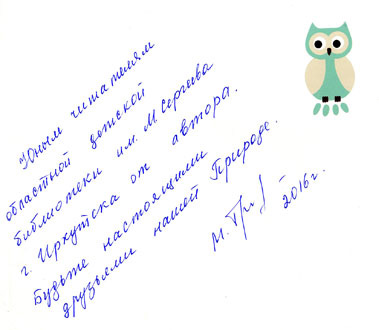 Юным читателям
областной детской
библиотеки им. М. Сергеева
г. Иркутска от автора.
Будьте настоящими
друзьями нашей Природе.
2016 г.